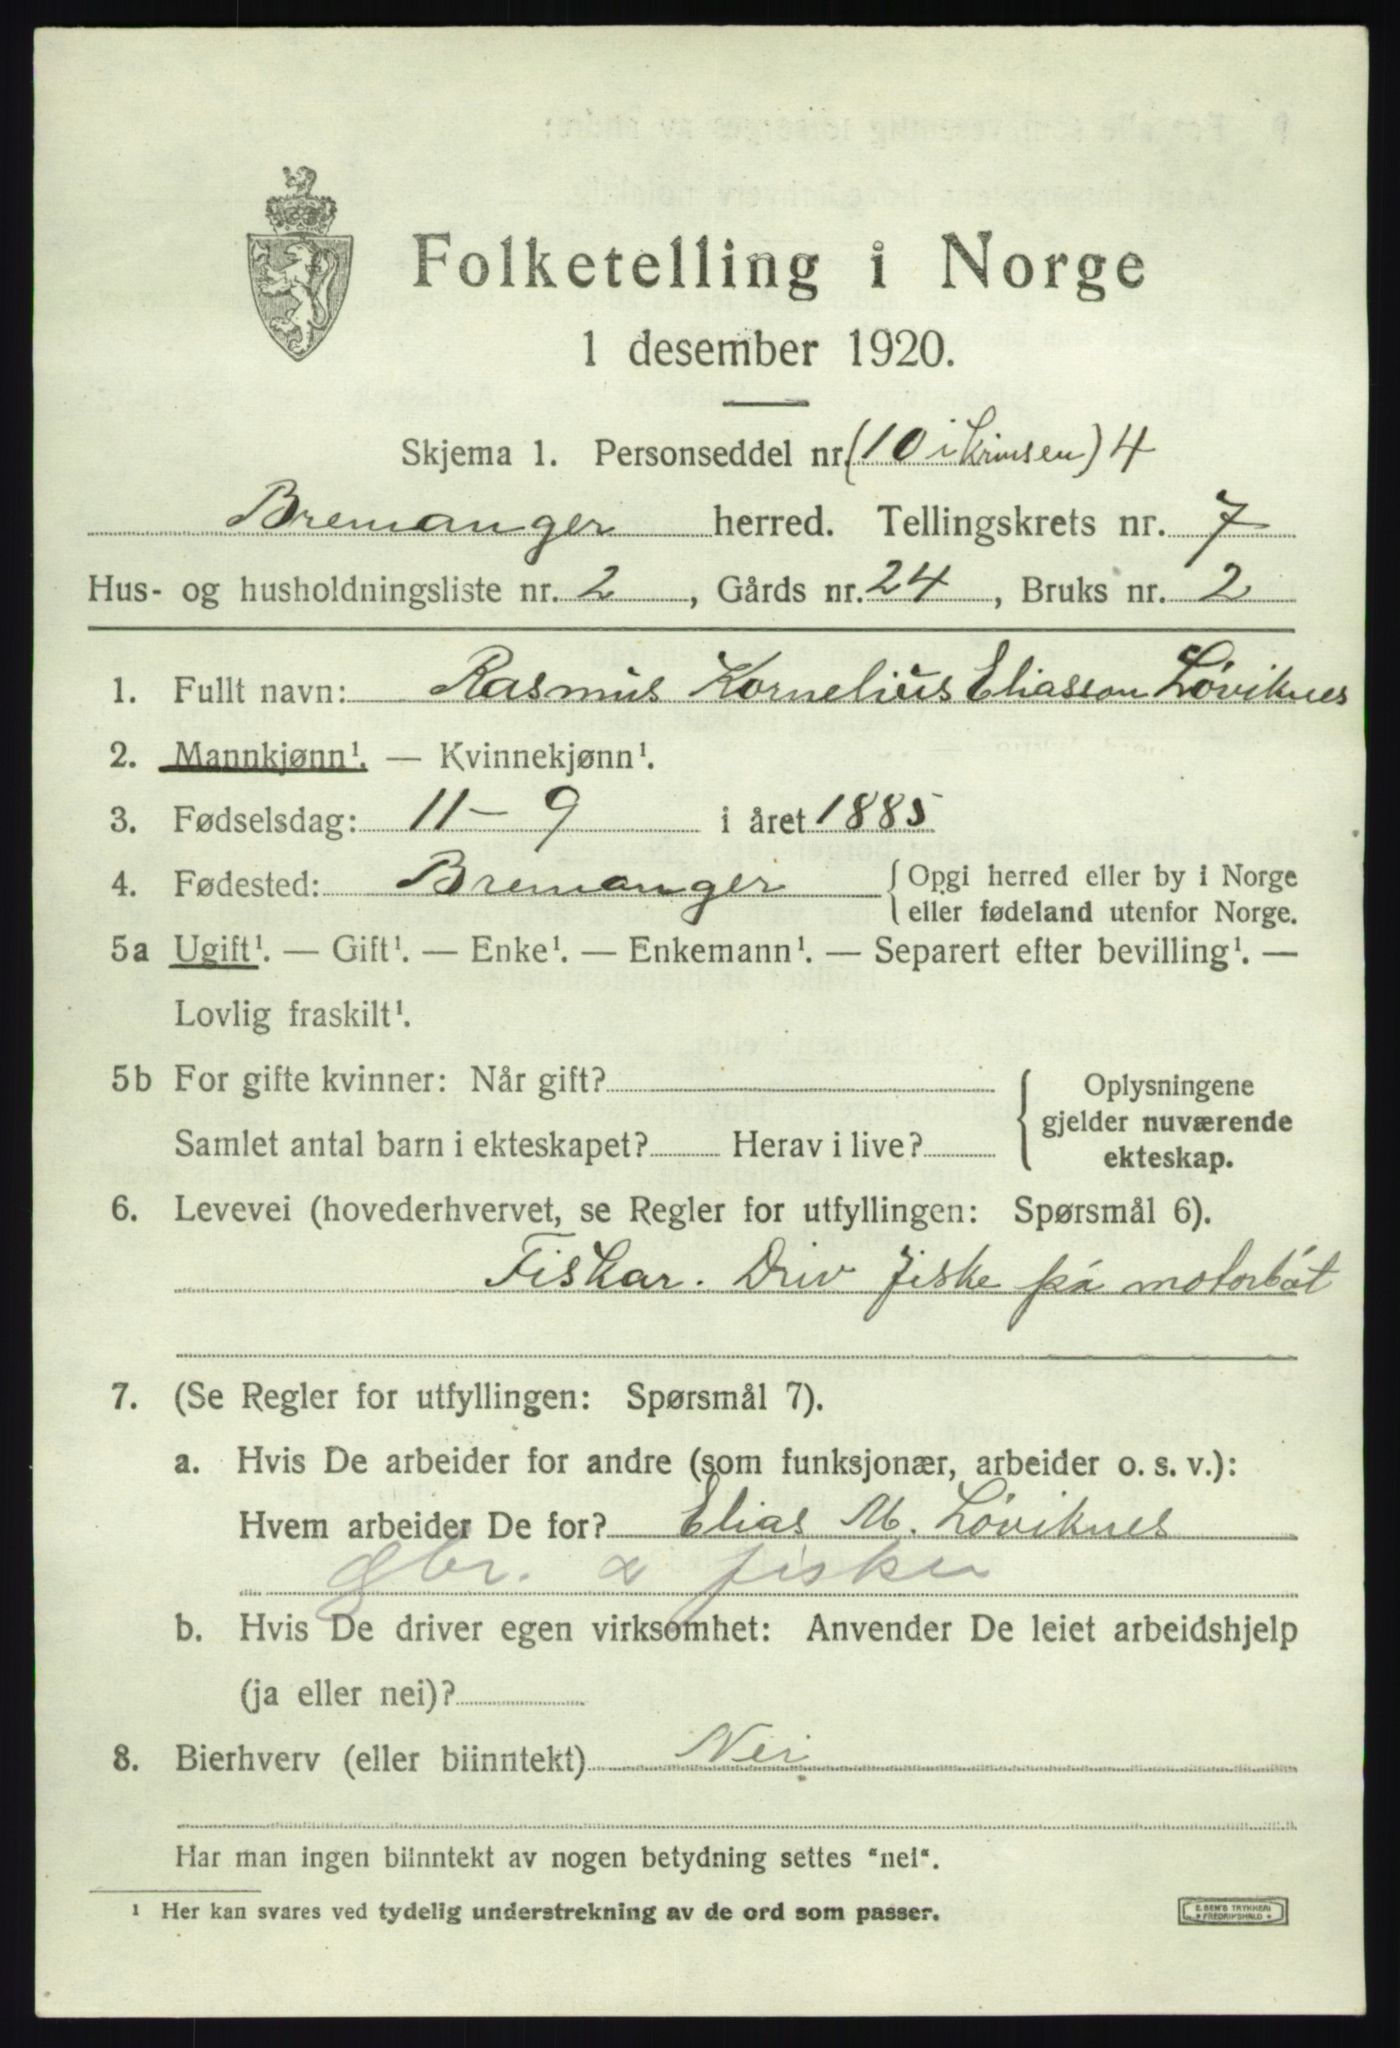 Folketelling i Norge
1 desember 1920.
Skjema 1. Personseddel nr. (10 i krinsen) 4
Bremanger herred. Tellingskrets nr. 7
Hus- og husholdningsliste nr. 2, Gårds nr. 24, Bruks nr. 2
1. Fullt navn: Rasmus Kornelius Eliasson Løviknes
2. Mannkjønn¹. — Kvinnekjønn¹.
3. Fødselsdag: 11 – 9 i året 1885
4. Fødested: Bremanger { Opgi herred eller by i Norge
eller fødeland utenfor Norge.
5a Ugift¹. — Gift¹. — Enke¹. — Enkemann¹. — Separert efter bevilling¹. —
Lovlig fraskilt¹.
5b For gifte kvinner: Når gift? { Oplysningene
gjelder nuværende
Samlet antal barn i ekteskapet? Herav i live? ekteskap.
6. Levevei (hovederhvervet, se Regler for utfyllingen: Spørsmål 6).
Fiskar. Driv fiske på motorbåt
7. (Se Regler for utfyllingen: Spørsmål 7).
a. Hvis De arbeider for andre (som funksjonær, arbeider o. s. v.):
Hvem arbeider De for? Elias M. Løviknes
gbr. & fisker
b. Hvis De driver egen virksomhet: Anvender De leiet arbeidshjelp
(ja eller nei)?
8. Bierhverv (eller biinntekt) Nei
Har man ingen biinntekt av nogen betydning settes "nei".
¹ Her kan svares ved tydelig understrekning av de ord som passer.
E. SEM'S TRYKKERI
FREDRIKSHALD